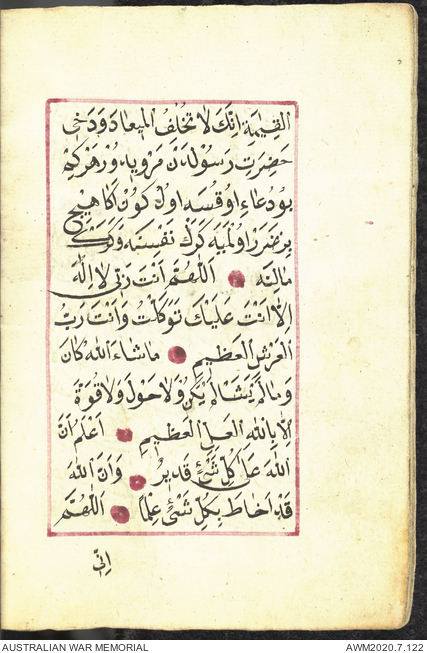 القيمة انك لا تخلف الميعاد ودخى
حضرت رسولدن مرويدر هر كيم
بو دعاء اوقسه اول كون اكا هيچ
بر ضرر اولميه كرك نفسنه و كرك
مالنه اللهم انت ربى لا اله
الا انت عليك توكلت وانت رب
العرش العظيم ما شاء الله كان
وما لم يشاء لم يكن ولا حول ولا قوة
الا بالله العلى العظيم اعلم ان
الله على كل شئ قدير وان الله
قد احاط بكل شئ علما اللهم
انى
AUSTRALIAN WAR MEMORIAL
AWM2020.7.122